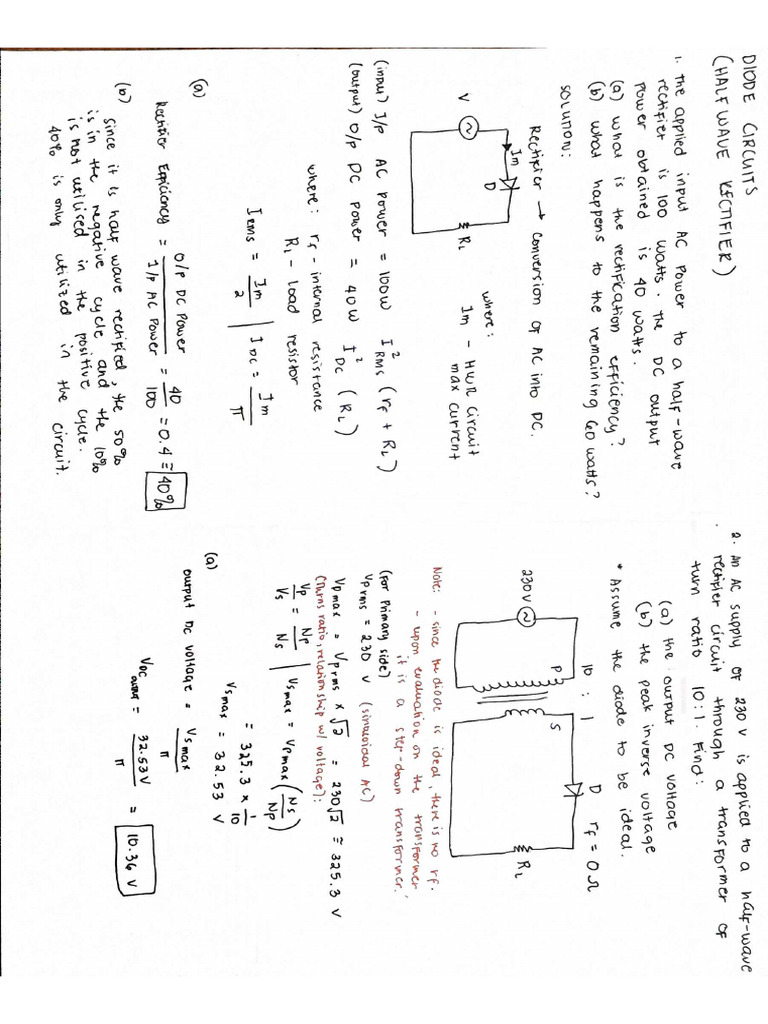 DIODE CIRCUITS
(HALF WAVE RECTIFIER)
1. The applied input AC power to a half-wave
rectifier is 100 watts. The DC output
power obtained is 40 watts.
(a) what is the rectification efficiency?
(b) what happens to the remaining 60 watts?
SOLUTION:
Rectifier → Conversion of AC into DC.
V
Im
D
RL
where:
Im - HWR Circuit
max current
(input) I/p AC Power = 100W I²RMS (rf + RL)
(output) O/p DC Power = 40W I²DC (RL)
where: rf - internal resistance
RL - load resistor
IRMS = Im/2 | IDC = Im/π
(a)
Rectifier Efficiency = O/P DC Power / I/P AC Power = 40/100 = 0.4 ≅ 40%
(b)
since it is half wave rectified, the 50%
is in the negative cycle and the 10%
is not utilised in the positive cycle.
40% is only utilized in the circuit.
2. An AC supply of 230 V is applied to a half-wave
rectifier circuit through a transformer of
turn ratio 10:1. Find:
(a) the output DC voltage
(b) the peak inverse voltage
* Assume the diode to be ideal.
10 : 1
P
S
D rf = 0 Ω
230 V
RL
Note: - since the diode is ideal, there is no rf.
- upon evaluation on the transformer
it is a step-down transformer.
(For Primary side)
Vprms = 230 V (sinusoidal AC)
Vpmax = Vprms x √2 = 230√2 ≅ 325.3 V
(Turns ratio, relationship w/ voltage):
Vp/Vs = Np/Ns | Vsmax = Vpmax (Ns/Np)
= 325.3 x 1/10
Vsmax = 32.53 V
(a)
output DC voltage = Vsmax/π
VDC output = 32.53V/π = 10.36 V